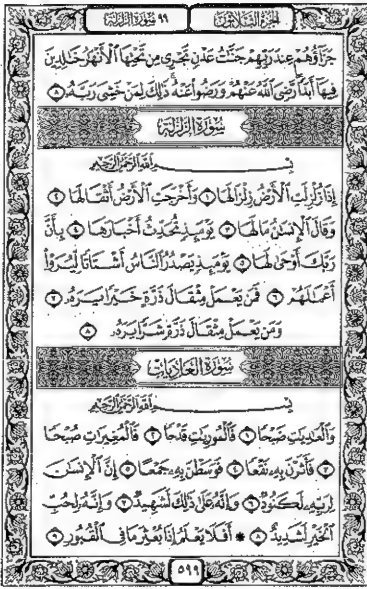 الجزء الثلاثون ٩٩ سورة الزلزلة
جَزَآؤُهُمْ عِندَ رَبِّهِمْ جَنَّٰتُ عَدْنٍ تَجْرِى مِن تَحْتِهَا ٱلْأَنْهَٰرُ خَٰلِدِينَ
فِيهَآ أَبَدًا رَّضِىَ ٱللَّهُ عَنْهُمْ وَرَضُوا۟ عَنْهُ ذَٰلِكَ لِمَنْ خَشِىَ رَبَّهُۥ ٨
سُورَةُ الزَّلْزَلَةِ
بِسْمِ ٱللَّهِ ٱلرَّحْمَٰنِ ٱلرَّحِيمِ
إِذَا زُلْزِلَتِ ٱلْأَرْضُ زِلْزَالَهَا ١ وَأَخْرَجَتِ ٱلْأَرْضُ أَثْقَالَهَا ٢
وَقَالَ ٱلْإِنسَٰنُ مَا لَهَا ٣ يَوْمَئِذٍ تُحَدِّثُ أَخْبَارَهَا ٤ بِأَنَّ
رَبَّكَ أَوْحَىٰ لَهَا ٥ يَوْمَئِذٍ يَصْدُرُ ٱلنَّاسُ أَشْتَاتًا لِّيُرَوْا۟
أَعْمَٰلَهُمْ ٦ فَمَن يَعْمَلْ مِثْقَالَ ذَرَّةٍ خَيْرًا يَرَهُۥ ٧
وَمَن يَعْمَلْ مِثْقَالَ ذَرَّةٍ شَرًّا يَرَهُۥ ٨
سُورَةُ العَادِيَاتِ
بِسْمِ ٱللَّهِ ٱلرَّحْمَٰنِ ٱلرَّحِيمِ
وَٱلْعَٰدِيَٰتِ ضَبْحًا ١ فَٱلْمُورِيَٰتِ قَدْحًا ٢ فَٱلْمُغِيرَٰتِ صُبْحًا
٣ فَأَثَرْنَ بِهِۦ نَقْعًا ٤ فَوَسَطْنَ بِهِۦ جَمْعًا ٥ إِنَّ ٱلْإِنسَٰنَ
لِرَبِّهِۦ لَكَنُودٌ ٦ وَإِنَّهُۥ عَلَىٰ ذَٰلِكَ لَشَهِيدٌ ٧ وَإِنَّهُۥ لِحُبِّ
ٱلْخَيْرِ لَشَدِيدٌ ٨ ۞ أَفَلَا يَعْلَمُ إِذَا بُعْثِرَ مَا فِى ٱلْقُبُورِ ٩
٥٩٩